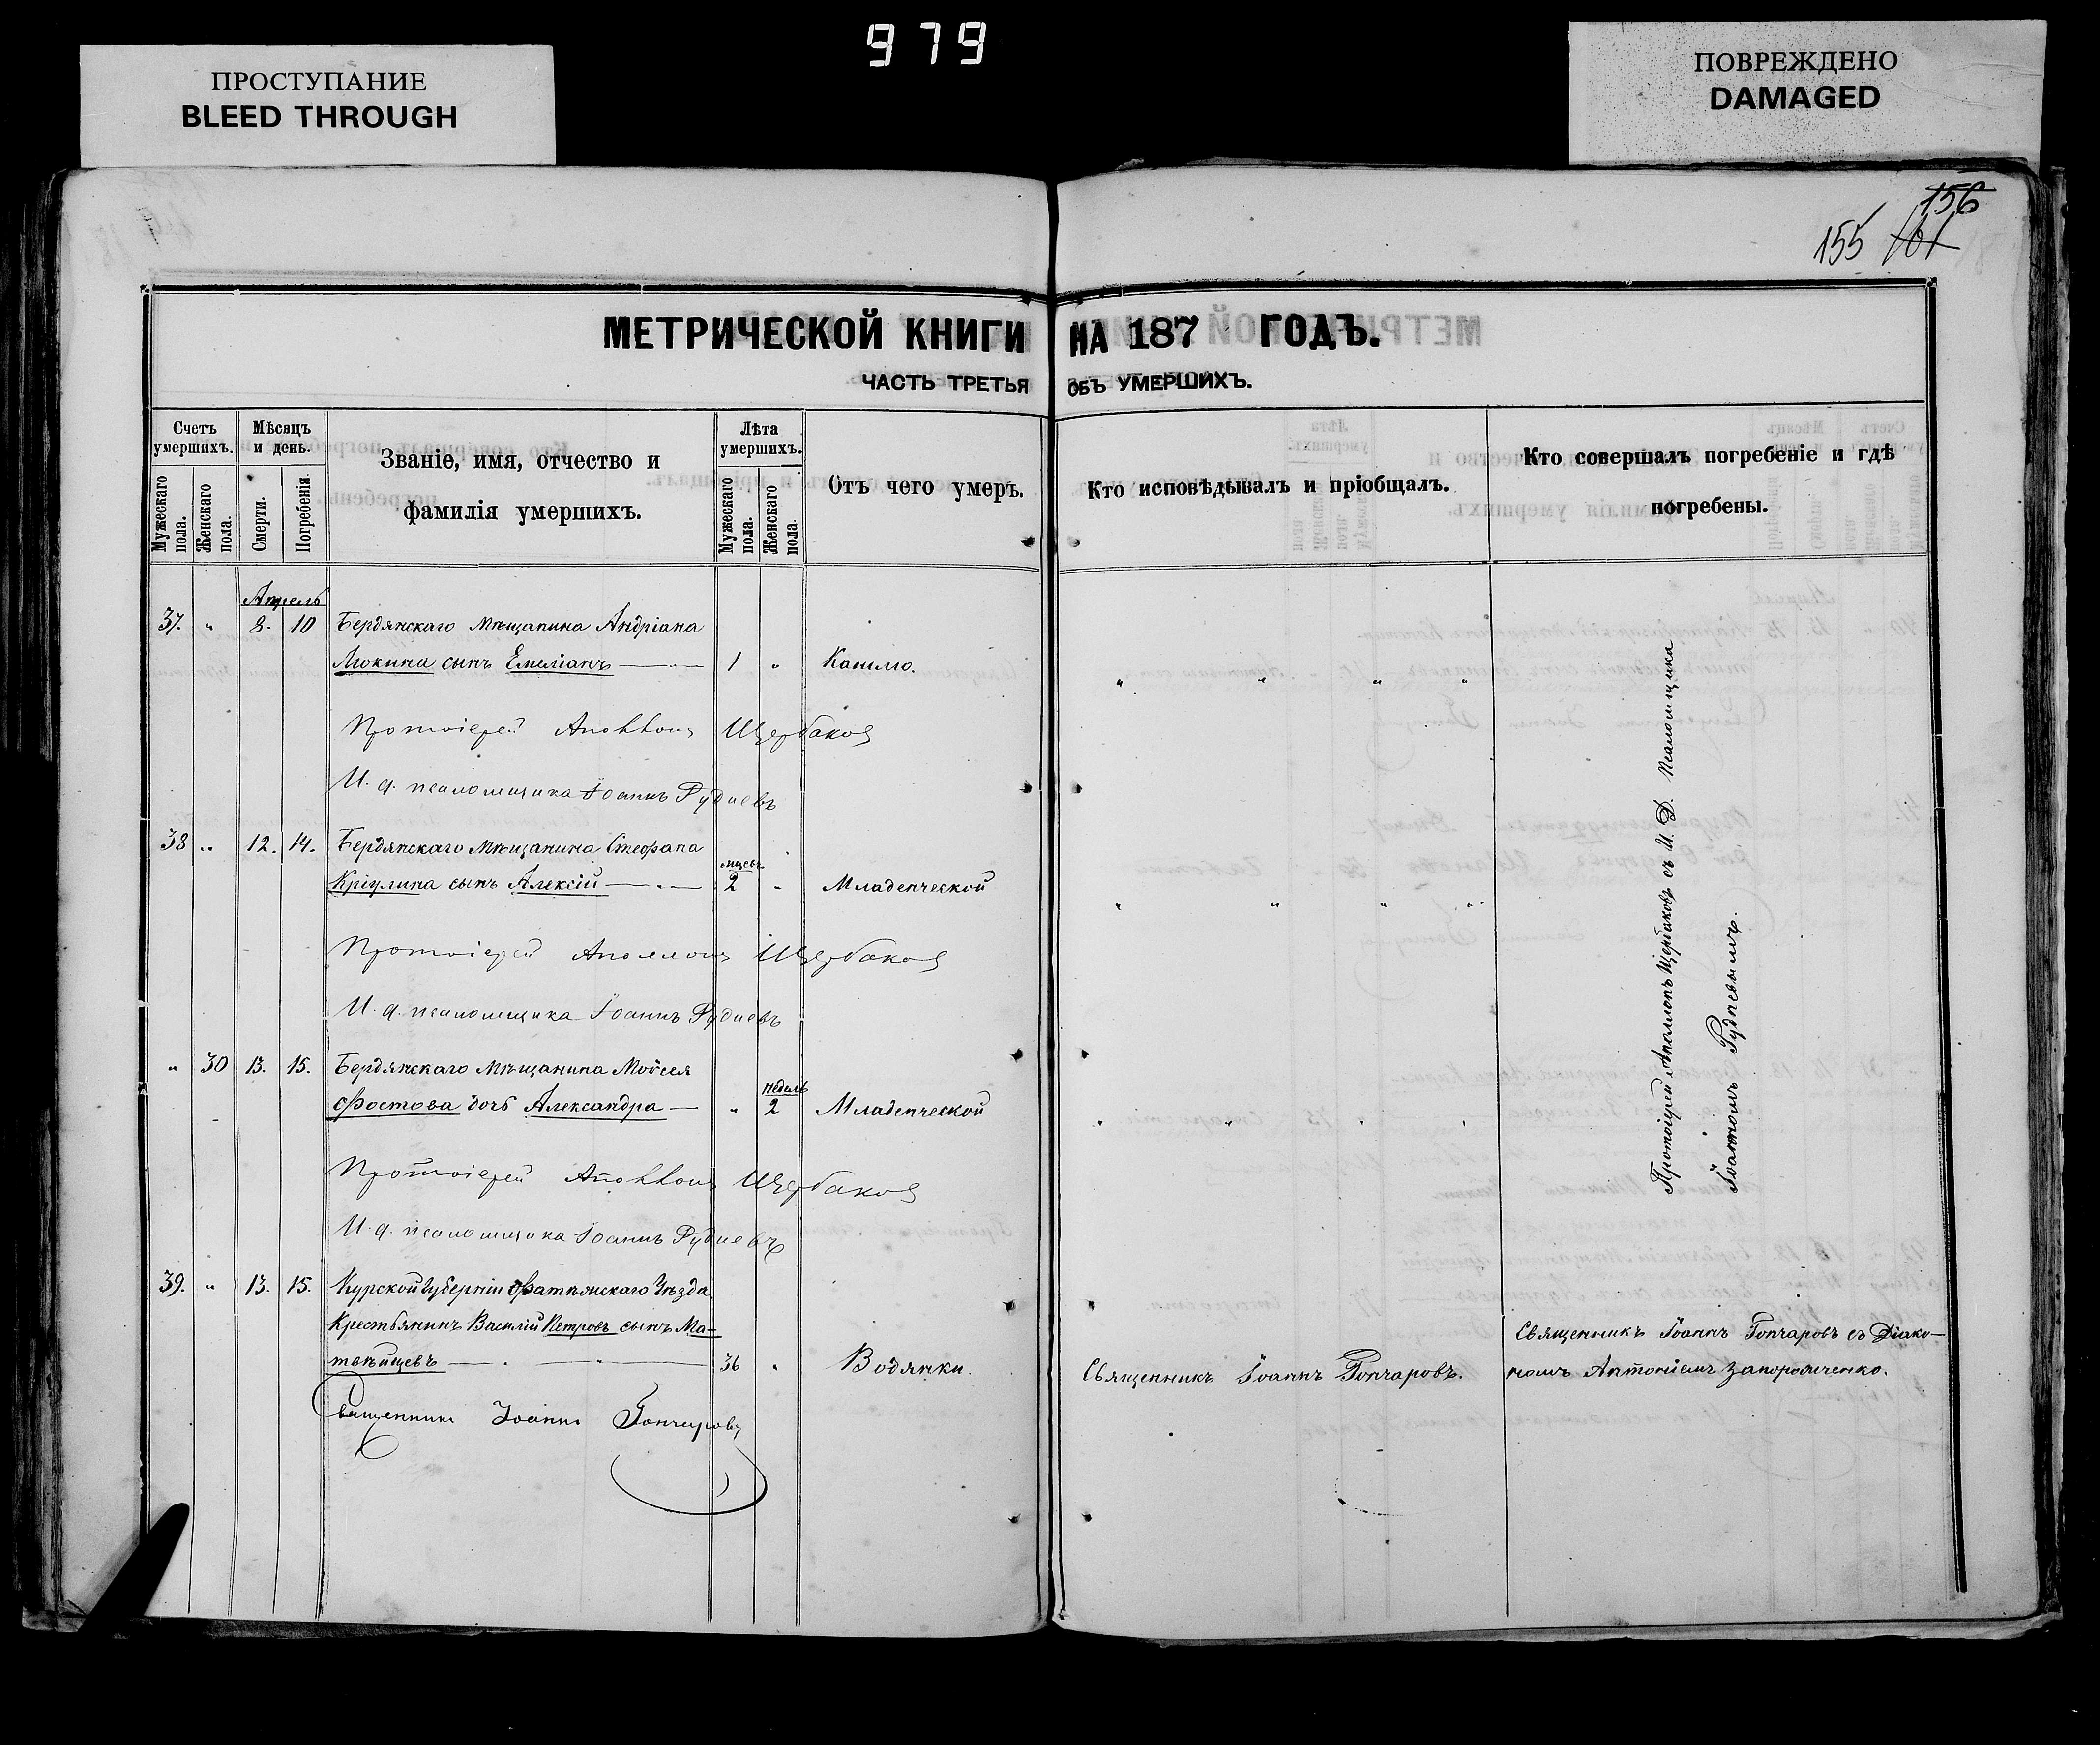 979
ПРОСТУПАНИЕ
BLEED THROUGH
ПОВРЕЖДЕНО
DAMAGED
156
155 101
МЕТРИЧЕСКОЙ КНИГИ НА 187 ГОДЪ.
ЧАСТЬ ТРЕТЬЯ ОБЪ УМЕРШИХЪ.
Счетъ умершихъ.
Мужескаго пола.
Женскаго пола.
Мѣсяцъ и день.
Смерти.
Погребенія.
Званіе, имя, отчество и
фамилія умершихъ.
Лѣта умершихъ.
Мужескаго пола.
Женскаго пола.
Отъ чего умеръ.
Кто исповѣдывалъ и пріобщалъ.
Кто совершалъ погребеніе и гдѣ
погребены.
Апрель
37. " 8. 10 Бердянскаго Мѣщанина Андріана
Люкина сынъ Емеліанъ 1 " Кашлю. " " " "
Протоіерей Аполлонъ Щербаковъ
И. д. псаломщика Іоаннъ Рудневъ
38 " 12. 14. Бердянскаго Мѣщанина Стефана
мцевъ
Кріулина сынъ Алексій 2 " Младенческой " " " "
Протоіерей Аполлонъ Щербаковъ
И. д. псаломщика Іоаннъ Рудневъ
" 30 13. 15. Бердянскаго Мѣщанина Моисея
недель
Фостова дочь Александра " 2 Младенческой " " " "
Протоіерей Аполлонъ Щербаковъ
И. д. псаломщика Іоаннъ Рудневъ
Протоіерей Аполлонъ Щербаковъ съ И. Д. Псаломщика
Іоанномъ Рудневымъ.
39. " 13. 15. Курской Губерніи Фатѣжскаго Уѣзда
Крестьянинъ Василій Петровъ сынъ Ма-
твѣйцевъ 36 " Водянки. Священникъ Іоаннъ Гончаровъ.
Священникъ Іоаннъ Гончаровъ съ Діако-
номъ Антоніемъ Запорожченко.
Священникъ Іоаннъ Гончаровъ